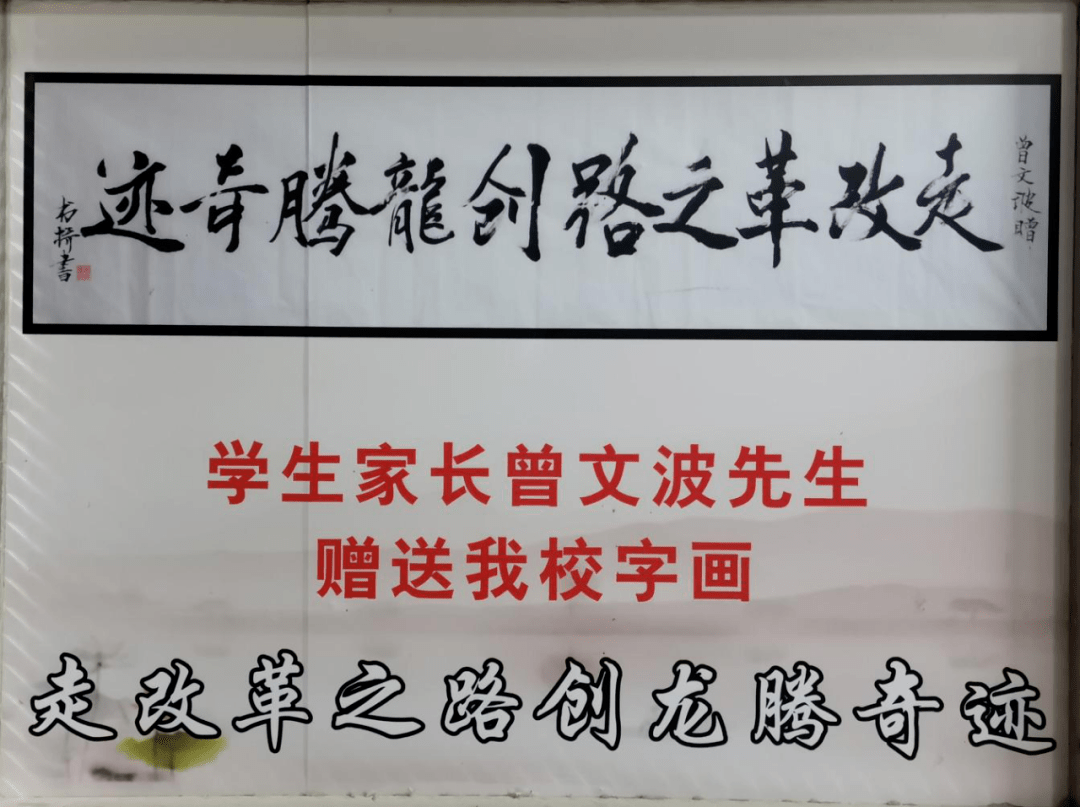 曾文波赠
走改革之路创龍腾奇迹
学生家长曾文波先生
赠送我校字画
走改革之路创龙腾奇迹